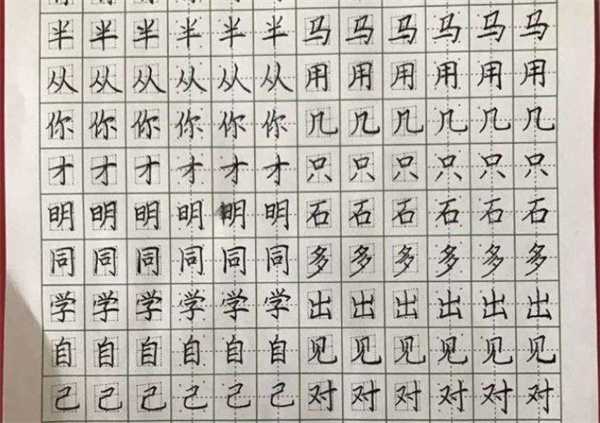 半半半半半半马马马马马马
从从从从从从用用用用用用
你你你你你你几几几几几几
才才才才才才只只只只只只
明明明明明明石石石石石石
同同同同同同多多多多多多
学学学学学学出出出出出出
自自自自自自见见见见见见
己己己己己己对对对对对对